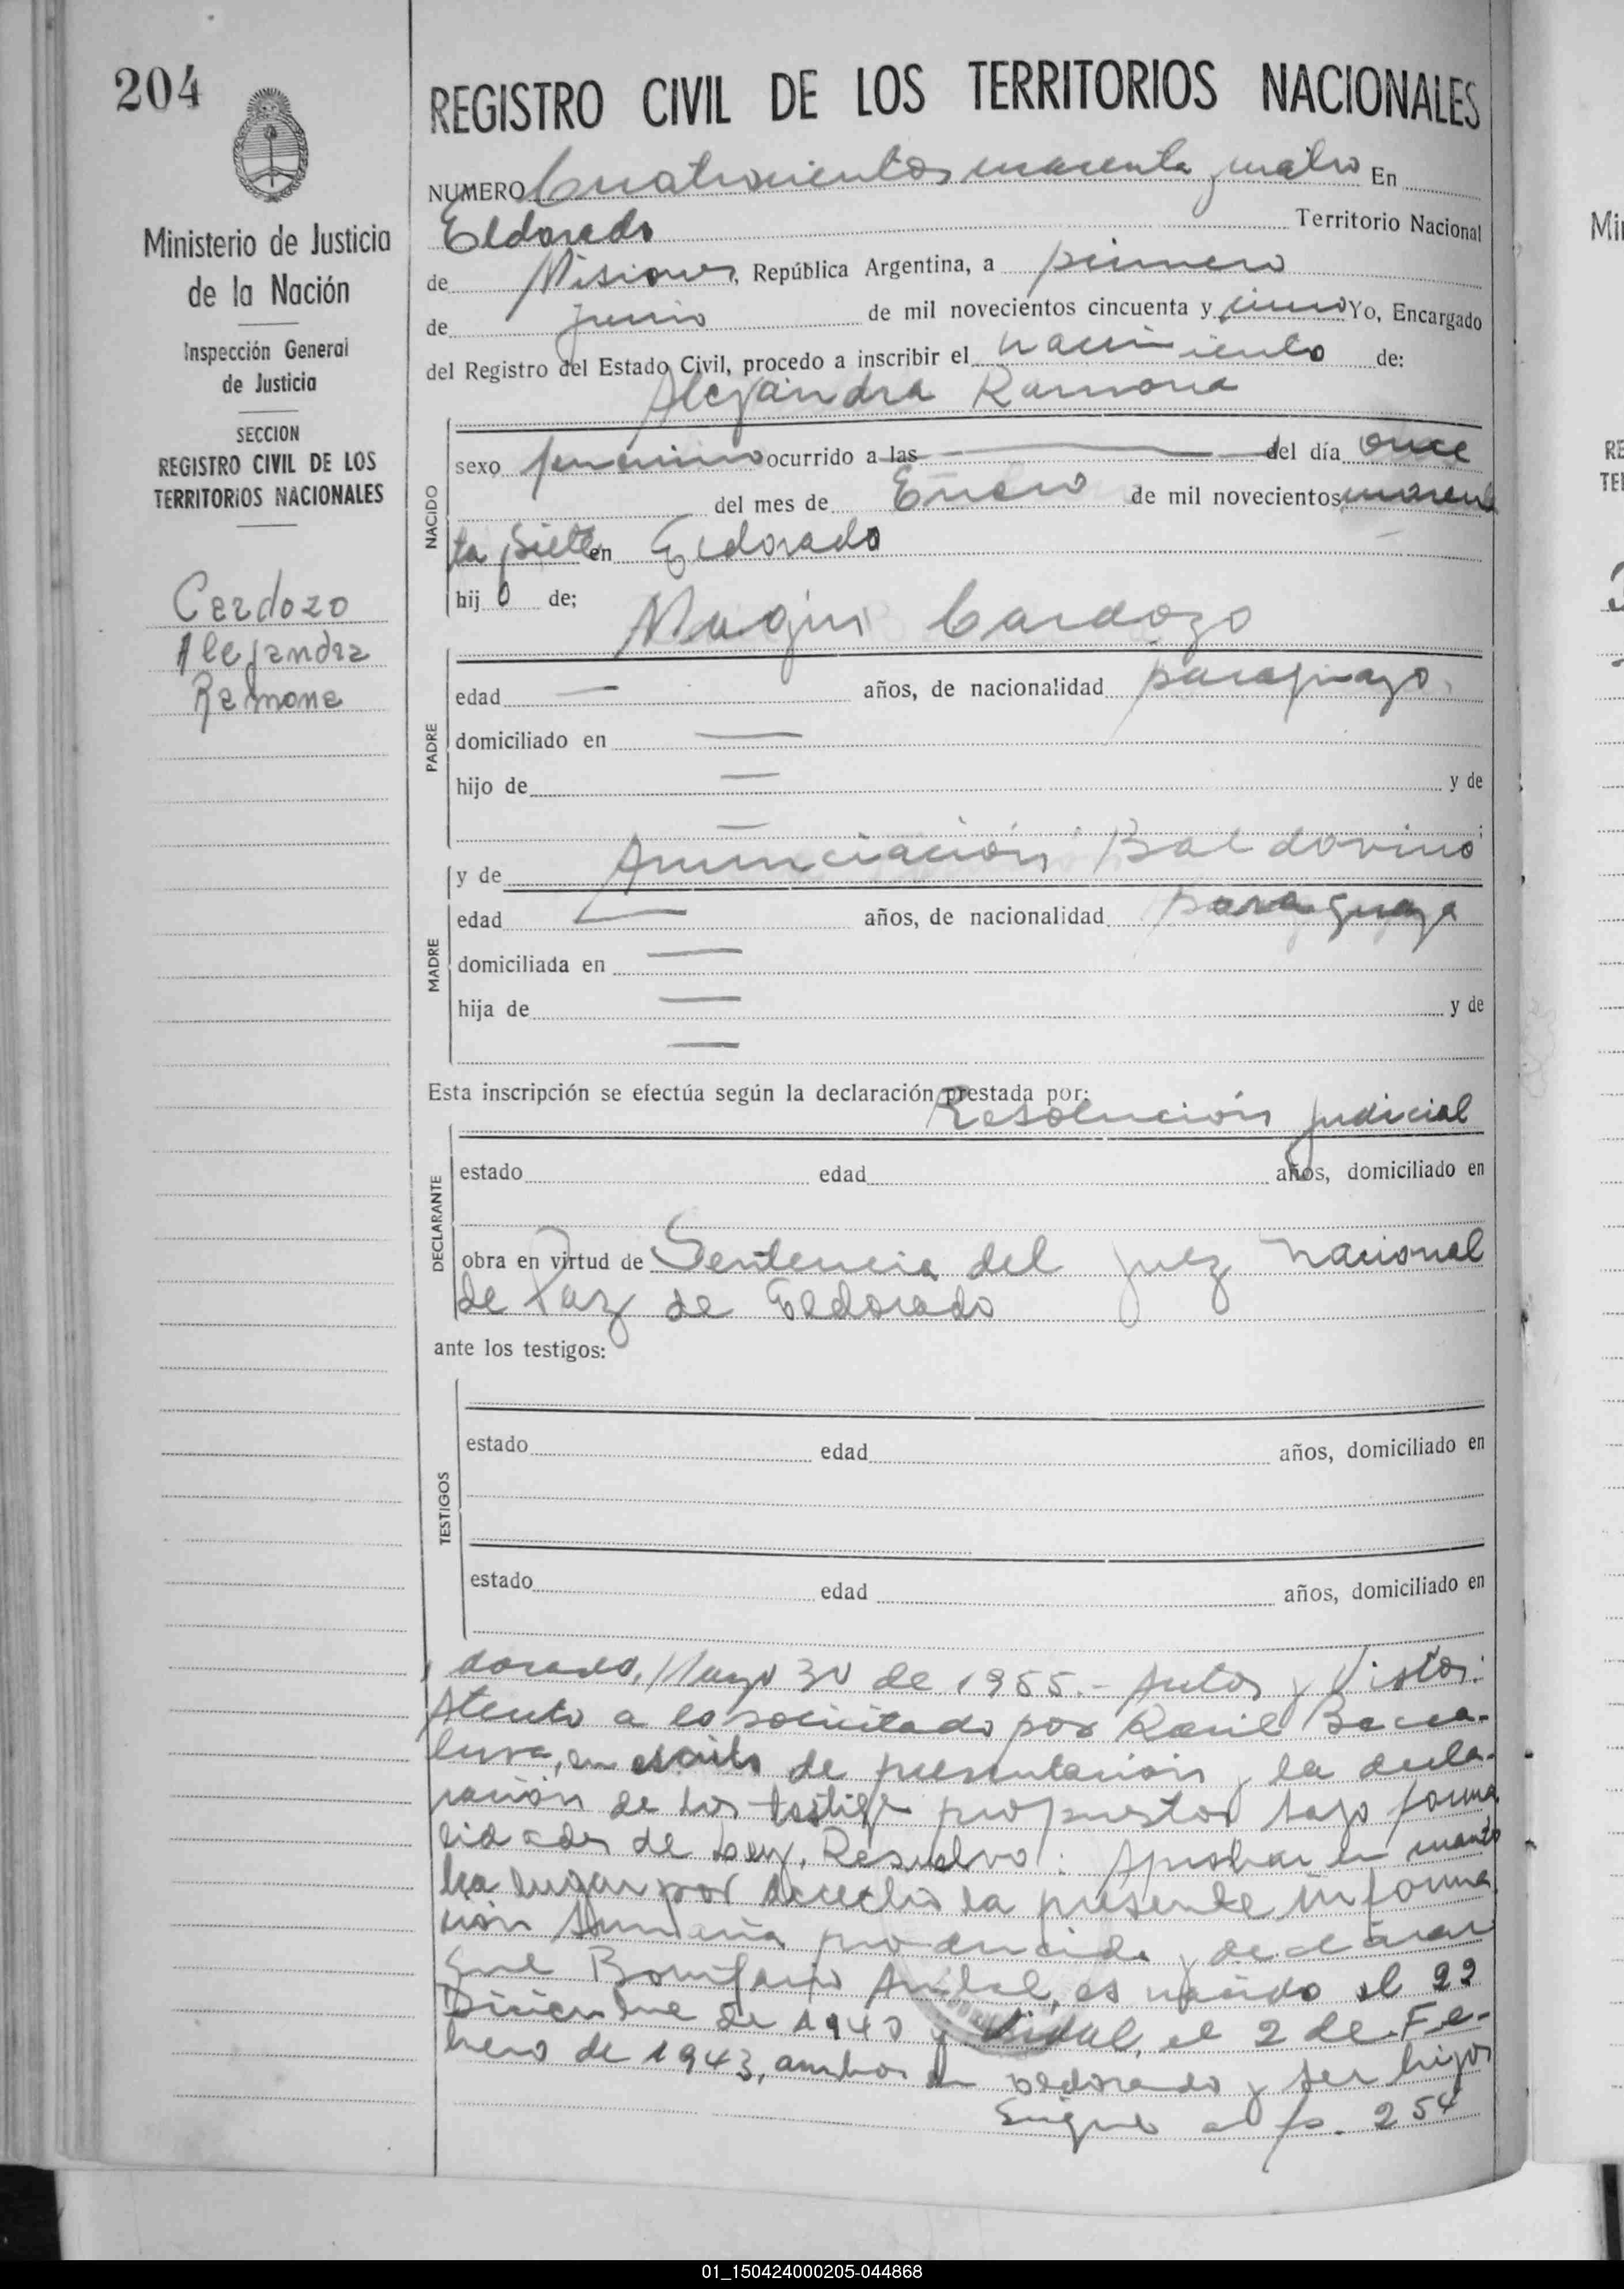 204
Ministerio de Justicia
de la Nación
Inspección General
de Justicia
SECCION
REGISTRO CIVIL DE LOS
TERRITORIOS NACIONALES
Cardozo
Alejandra
Ramona
REGISTRO CIVIL DE LOS TERRITORIOS NACIONALES
NUMERO Cuatrocientos cuarenta y cuatro En
Eldorado Territorio Nacional
de Misiones, República Argentina, a primero
de Junio de mil novecientos cincuenta y cinco Yo, Encargado
del Registro del Estado Civil, procedo a inscribir el nacimiento de:
Alejandra Ramona
NACIDO
sexo femenino ocurrido a las — del día once
del mes de Enero de mil novecientos cuaren
ta y siete en Eldorado
hij o de;
Cardozo
PADRE
edad — años, de nacionalidad paraguayo.
domiciliado en —
hijo de — y de
—
y de Anunciación Baldovino
MADRE
edad — años, de nacionalidad paraguaya
domiciliada en —
hija de — y de
—
Esta inscripción se efectúa según la declaración prestada por:
Resolución judicial
DECLARANTE
estado edad años, domiciliado en
obra en virtud de Sentencia del Juez Nacional
de Paz de Eldorado
ante los testigos:
TESTIGOS
estado edad años, domiciliado en
estado edad años, domiciliado en
dorado, Mayo 30 de 1955.- Autos y Vistos:
Atento a lo solicitado por Raúl
en escrito de presentación y la decla-
ración de los testigos propuestos bajo forma
lidades de Ley, Resuelvo: Aprobar en cuanto
ha lugar por derecho la presente informa
ción sumaria producida y declarar
que Bonifacio Anibal, es nacido el 22
Diciembre de 1940 y Vidal, el 2 de Fe-
brero de 1943, ambos en Eldorado y ser hijos
Sigue al fs. 254
Mi
RE
TE
01_150424000205-044868